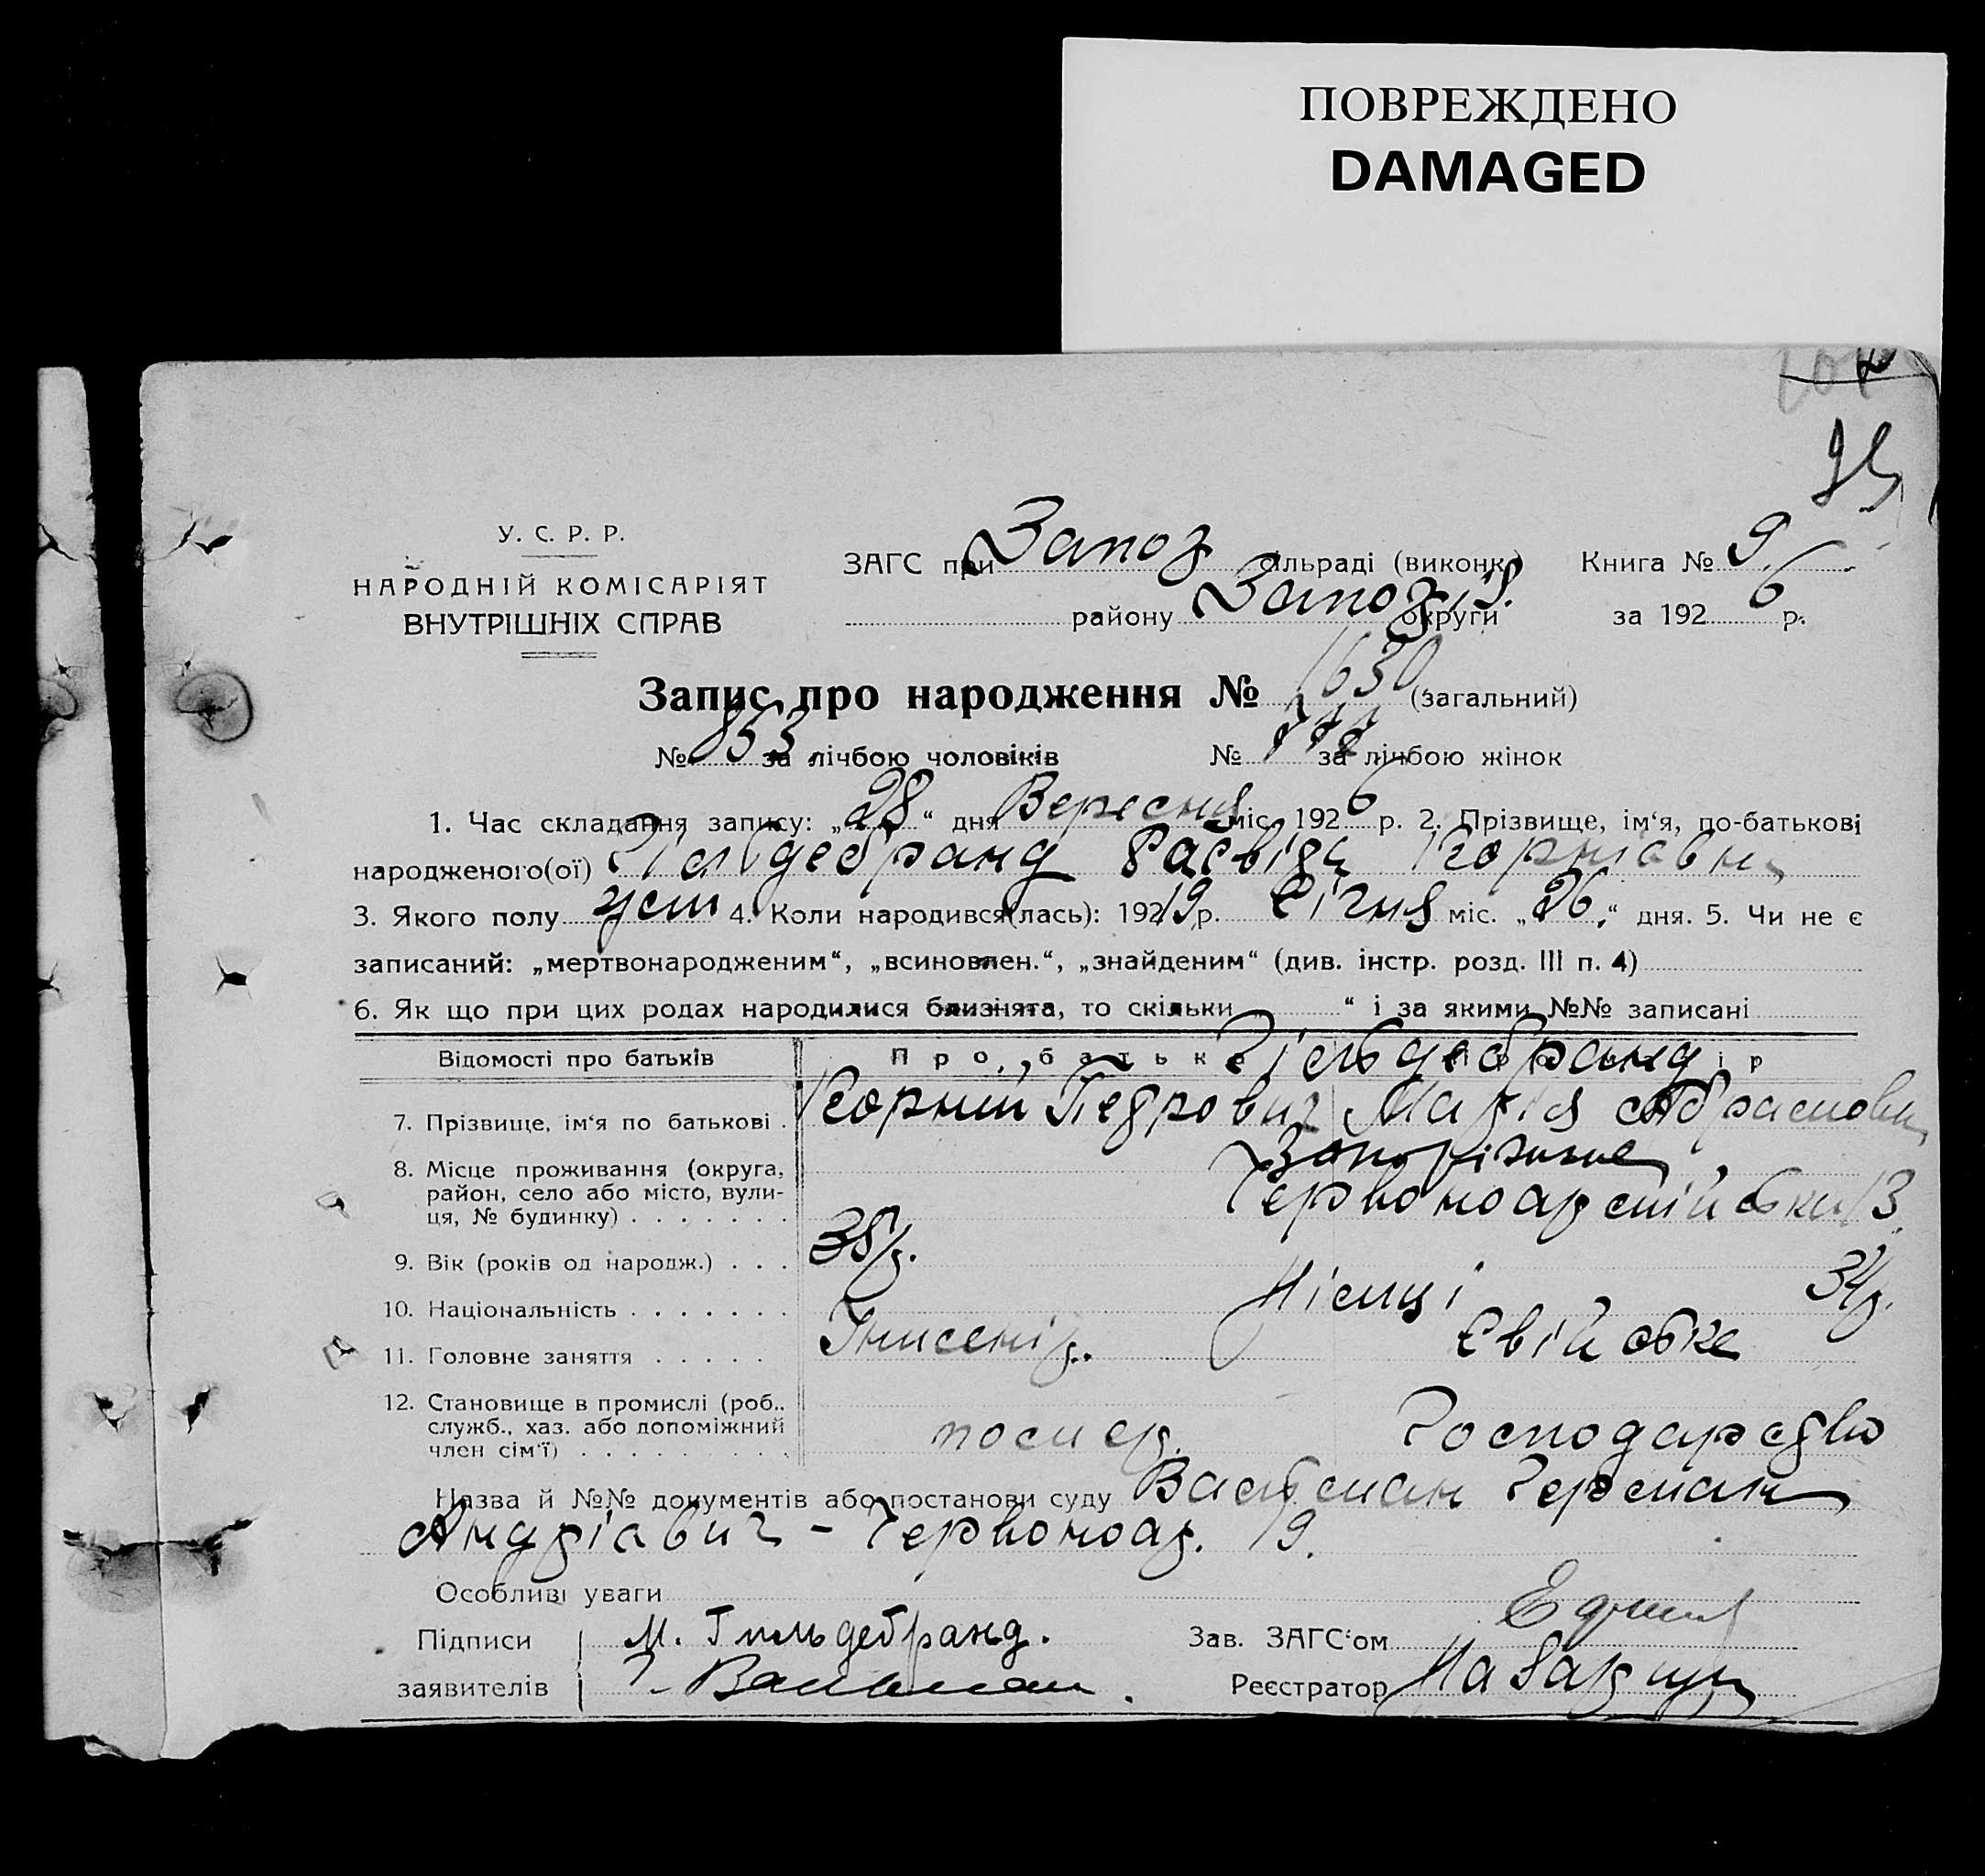 ПОВРЕЖДЕНО
DAMAGED
У. С. Р. Р.
НАРОДНІЙ КОМІСАРІЯТ
ВНУТРІШНІХ СПРАВ
ЗАГС при Запоз сільраді (виконк.) Книга № 9
району Запоз округи за 1926 р.
Запис про народження № 1630 (загальний)
№ 853 за лічбою чоловіків № 777 за лічбою жінок
1. Час складання запису: „28“ дня Вересня міс. 1926 р. 2. Прізвище, ім‘я, по-батькові
народженого(ої) Гільдебранд
3. Якого полу 4. Коли народився(лась): 1919 р. Січня міс. „26.“ дня. 5. Чи не є
записаний: „мертвонародженим“, „всиновлен.“, „знайденим“ (див. інстр. розд. III п. 4)
6. Як що при цих родах народилися близнята, то скільки “ і за якими №№ записані
Відомості про батьків Про батька Гільдебранд
7. Прізвище, ім‘я по батькові Корній Петрович Марія Абрамовн
8. Місце проживання (округа, район, село або місто, вулиця, № будинку) Запоріжжє Червоноармійська 13
9. Вік (років од народж.) 38р. 34р.
10. Національність Німці
11. Головне заняття Інженір. Євійське
12. Становище в промислі (роб., служб., хаз. або допоміжний член сім‘ї) Господарство
Назва й №№ документів або постанови суду Вальман Герман
Андрієвич - Червоноар. 19.
Особливі уваги
Підписи М. Гильдебранд. Зав. ЗАГС‘ом
заявителів Г. Вальман. Реєстратор